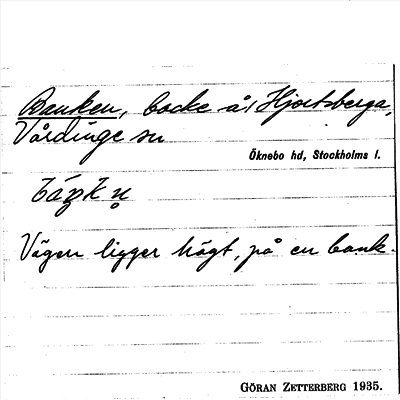 Banken, backe å Hjortsberga,
Vårdinge sn
Öknebo hd, Stockholms l.
Vägen ligger högt, på en bank.
GÖRAN ZETTERBERG 1935.